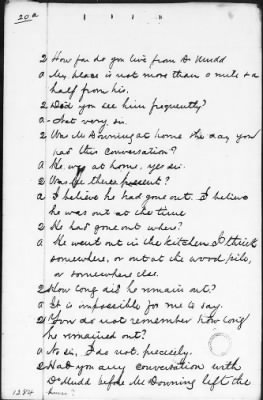 20a
2 How far do you live from Dr Mudd
a My place is not more than a mile & a
half from his.
2 Did you see him frequently?
a Not very sir.
2 Was Mr Downing at home the day you
had this conversation?
a He was at home, yes sir.
2 Was he there present?
a I believe he had gone out. I believe
he was out at the time
2 He had gone out where?
a He went out in the kitchen I think
somewhere, or out at the wood pile,
or somewhere else.
2 How long did he remain out?
a It is impossible for me to say.
2 You do not remember how long
he remained out?
a No sir, I do not, precisely.
2 Had you any conversation with
Dr Mudd before Mr Downing left the
1284 house?